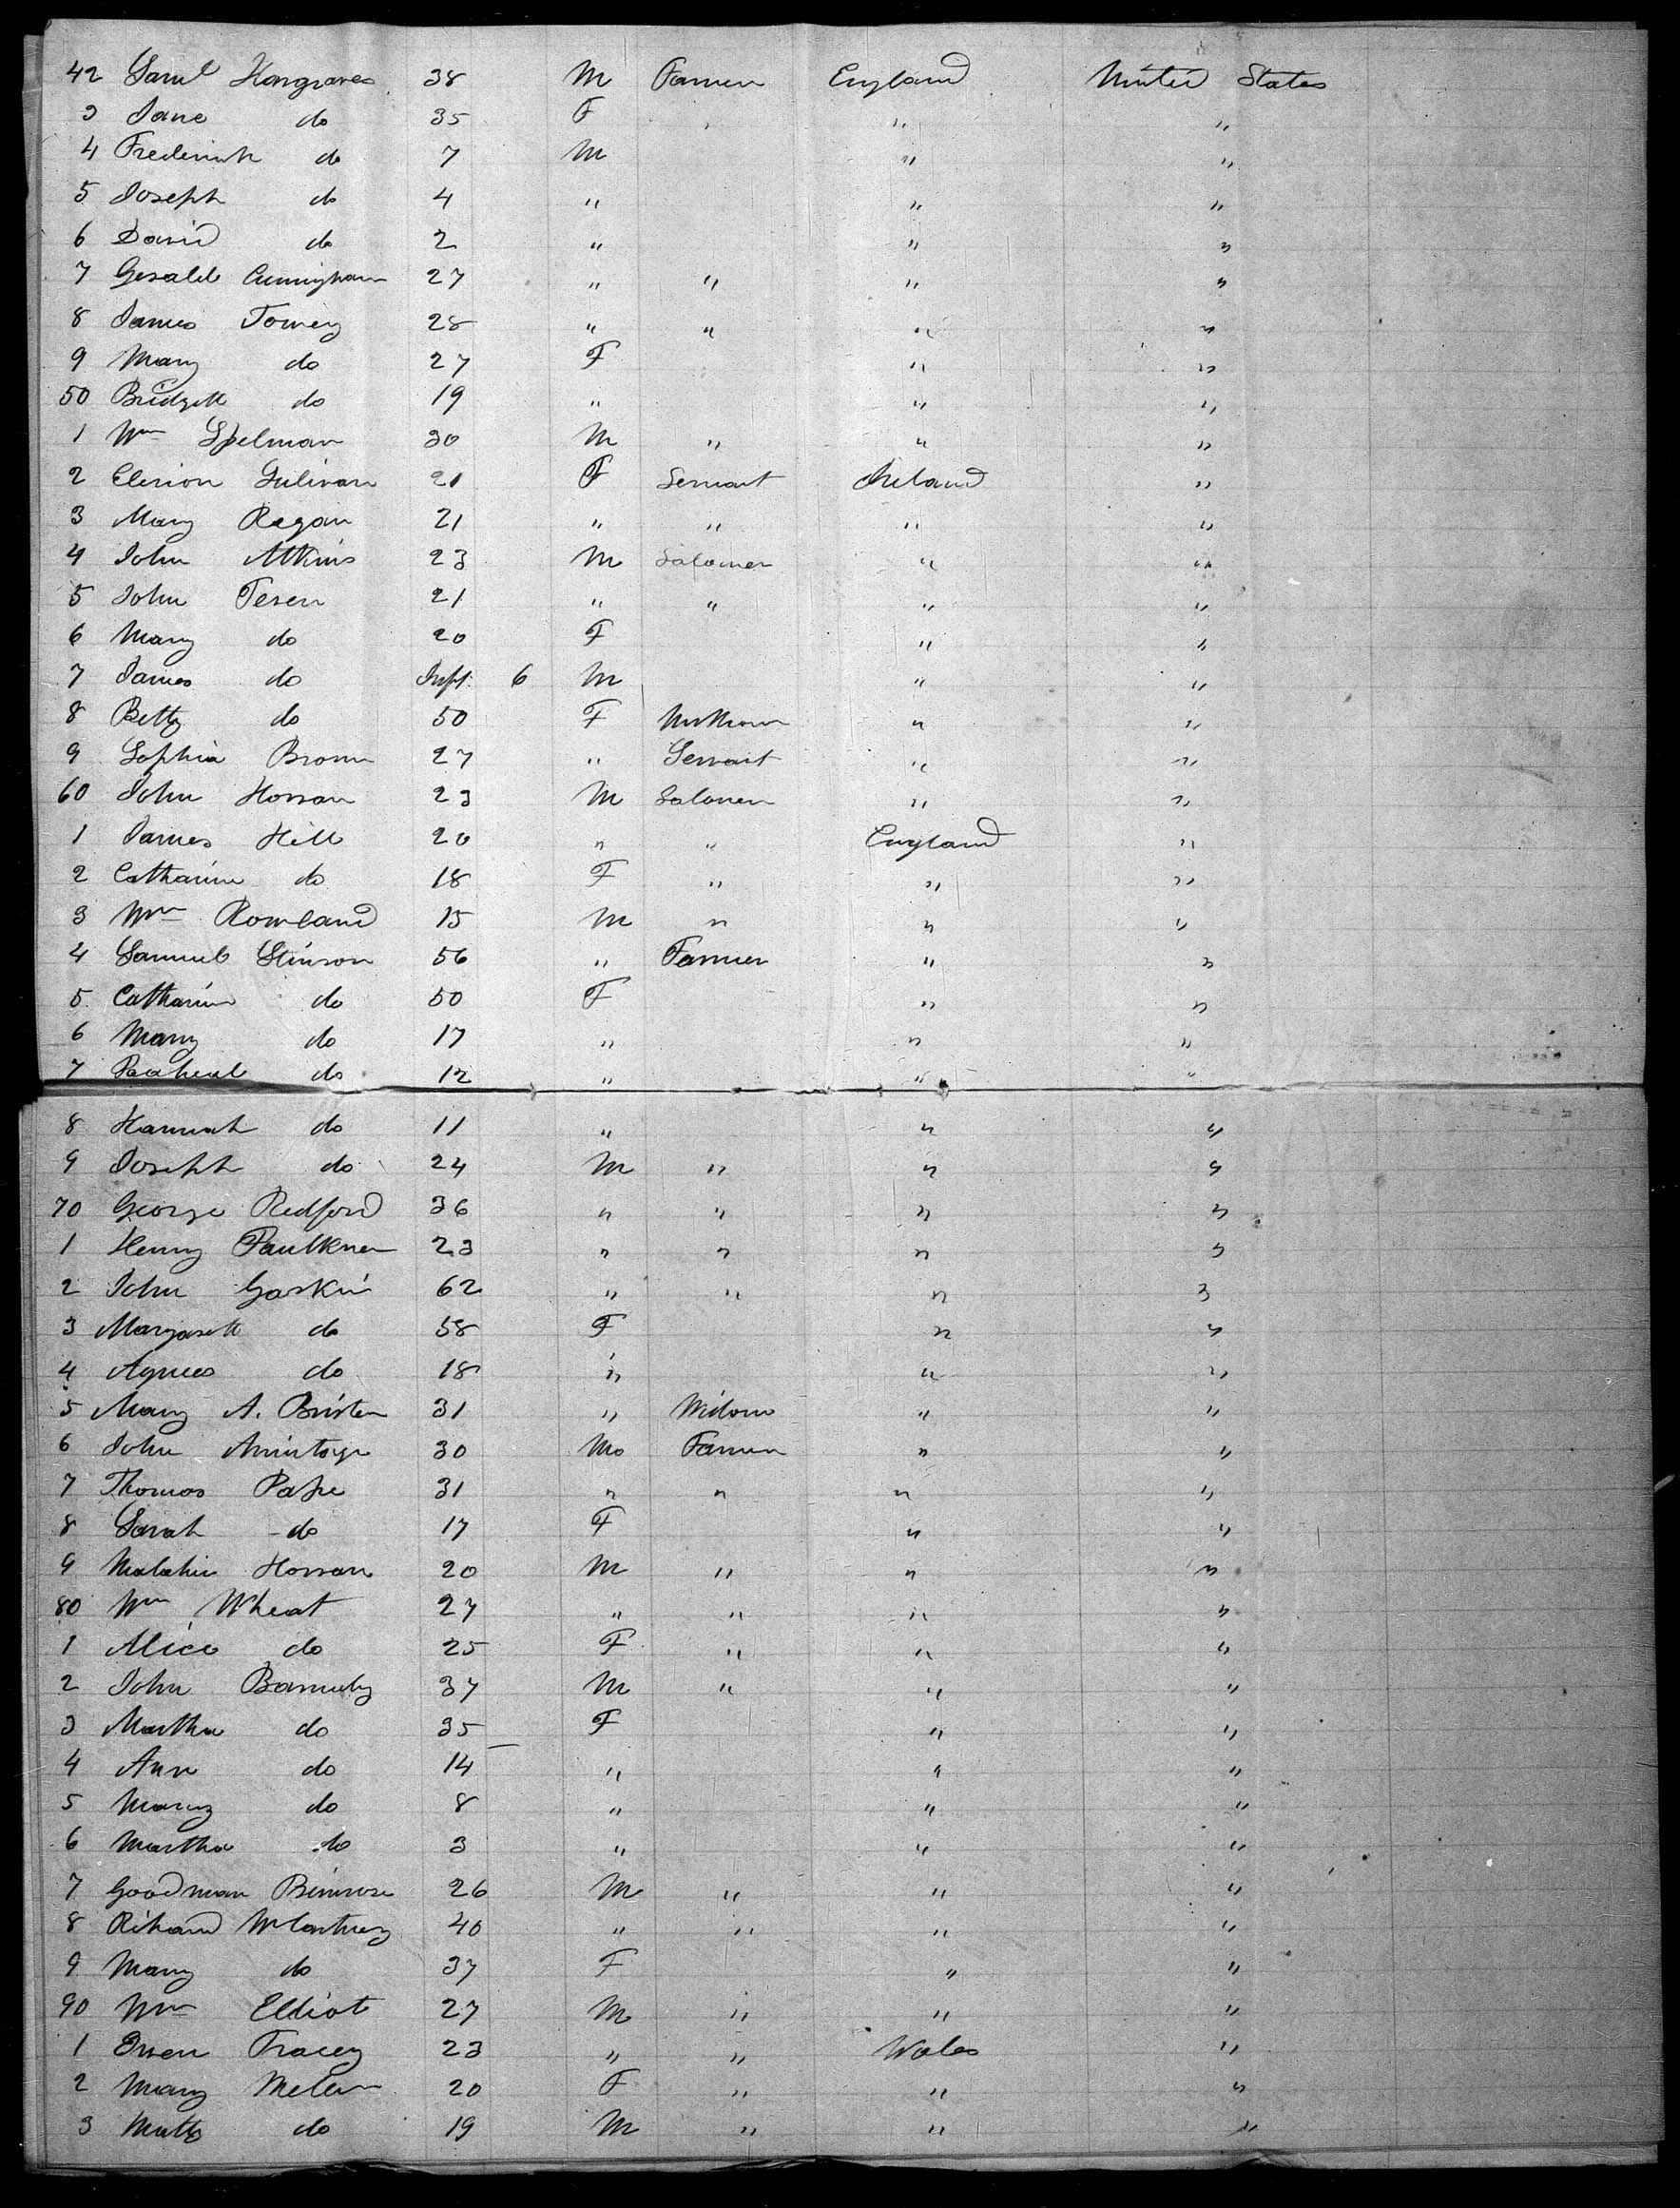 42 Saml Hargraves 38 M Farmer England United States
3 Jane do 35 F " " "
4 Frederick do 7 M " "
5 Joseph do 4 " " "
6 David do 2 " " "
7 Gerald Cunningham 27 " " " "
8 James Tomey 28 " " " "
9 Mary do 27 F " "
50 Bridgett do 19 " " "
1 Wm Spelman 30 M " " "
2 Sulivan 21 F Servant Ireland "
3 Mary Ragan 21 " " " "
4 John Atkins 23 M Laborer " "
5 John Tesen 21 " " " "
6 Mary do 20 F " "
7 James do Inft. 6 M " "
8 Betty do 50 F " "
9 Sophia Brown 27 " Servant " "
60 John Horran 23 M Laborer " "
1 James Hill 20 " " England "
2 Catharine do 18 F " " "
3 Wm Rowland 15 M " " "
4 Samuel Stinson 56 " Farmer " "
5 Catharine do 50 F " "
6 Mary do 17 " " "
7 Racheal do 12 " " "
8 Hannah do 11 " " "
9 Joseph do 24 M " " "
70 George Redford 36 " " " "
1 Henry Faulkner 23 " " " "
2 John Gaskin 62 " " " "
3 Margarett do 58 F " "
4 Agnes do 18 " " "
5 Mary A. Brister 31 " Widow " "
6 John Armitage 30 M Farmer " "
7 Thomas Pape 31 " " " "
8 Sarah do 17 F " "
9 Malachi Horran 20 M " " "
80 Wm Wheat 27 " " " "
1 Alice do 25 F " " "
2 John Barnuby 37 M " " "
3 Martha do 35 F " "
4 Ann do 14 " " "
5 Mary do 8 " " "
6 Martha do 3 " " "
7 Goodman 26 M " " "
8 Richard McCartney 40 " " " "
9 Mary do 37 F " "
90 Wm Elliot 27 M " " "
1 Owen Tracey 23 " " Wales "
2 Mary 20 F " " "
3 do 19 M " " "